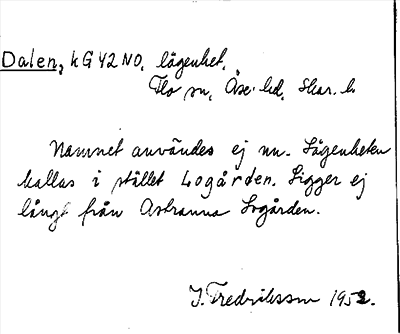 Dalen, kG 42 NO, lägenhet,
Flo sn, Åse hd, Skar. l.
Namnet användes ej nu. Lägenheten
kallas i stället Logården. Ligger ej
långt från Logården.
J. Fredriksson 1952.